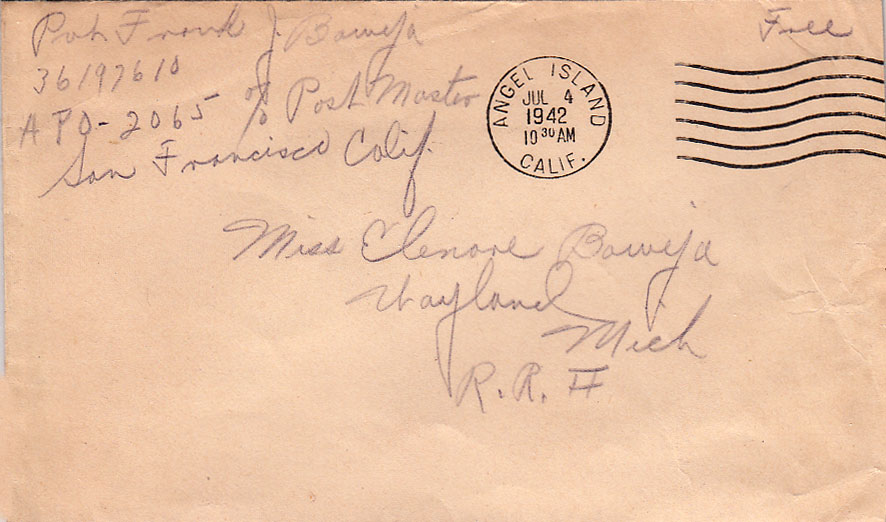 Pvt. Frank J. Boweja
Free
36197610
APO-2065 c/o Post Master
San Francisco Calif.
ANGEL ISLAND
JUL 4
1942
10 30 AM
CALIF.
Miss Elenore Boweja
Wayland
Mich
R.R. II